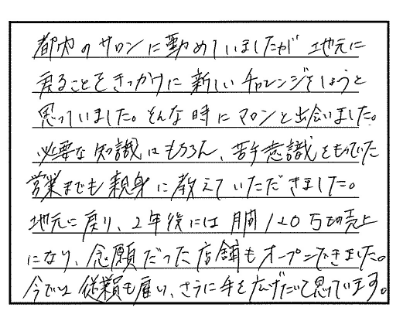 都内のサロンに勤めていましたが 地元に
戻ることをきっかけに 新しいチャレンジをしようと
思っていました。そんな時にマロンと出会いました。
必要な知識はもちろん、苦手意識をもっていた
営業までも親身に教えていただきました。
地元に戻り、2年後には月間120万の売上
になり、念願だった店舗もオープンできました。
今では従業員も雇い、さらに手を広げたいと思っています。